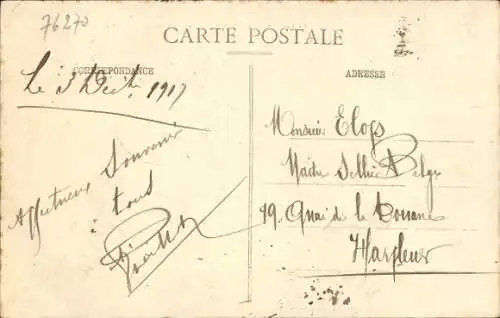 76270
CARTE POSTALE
CORRESPONDANCE
ADRESSE
Le 3 Dec 1917
Affectueux Souvenir
à tous
Monsieur Elops
Maître Sellier Belge
19. Quai de la Douane
Harfleur